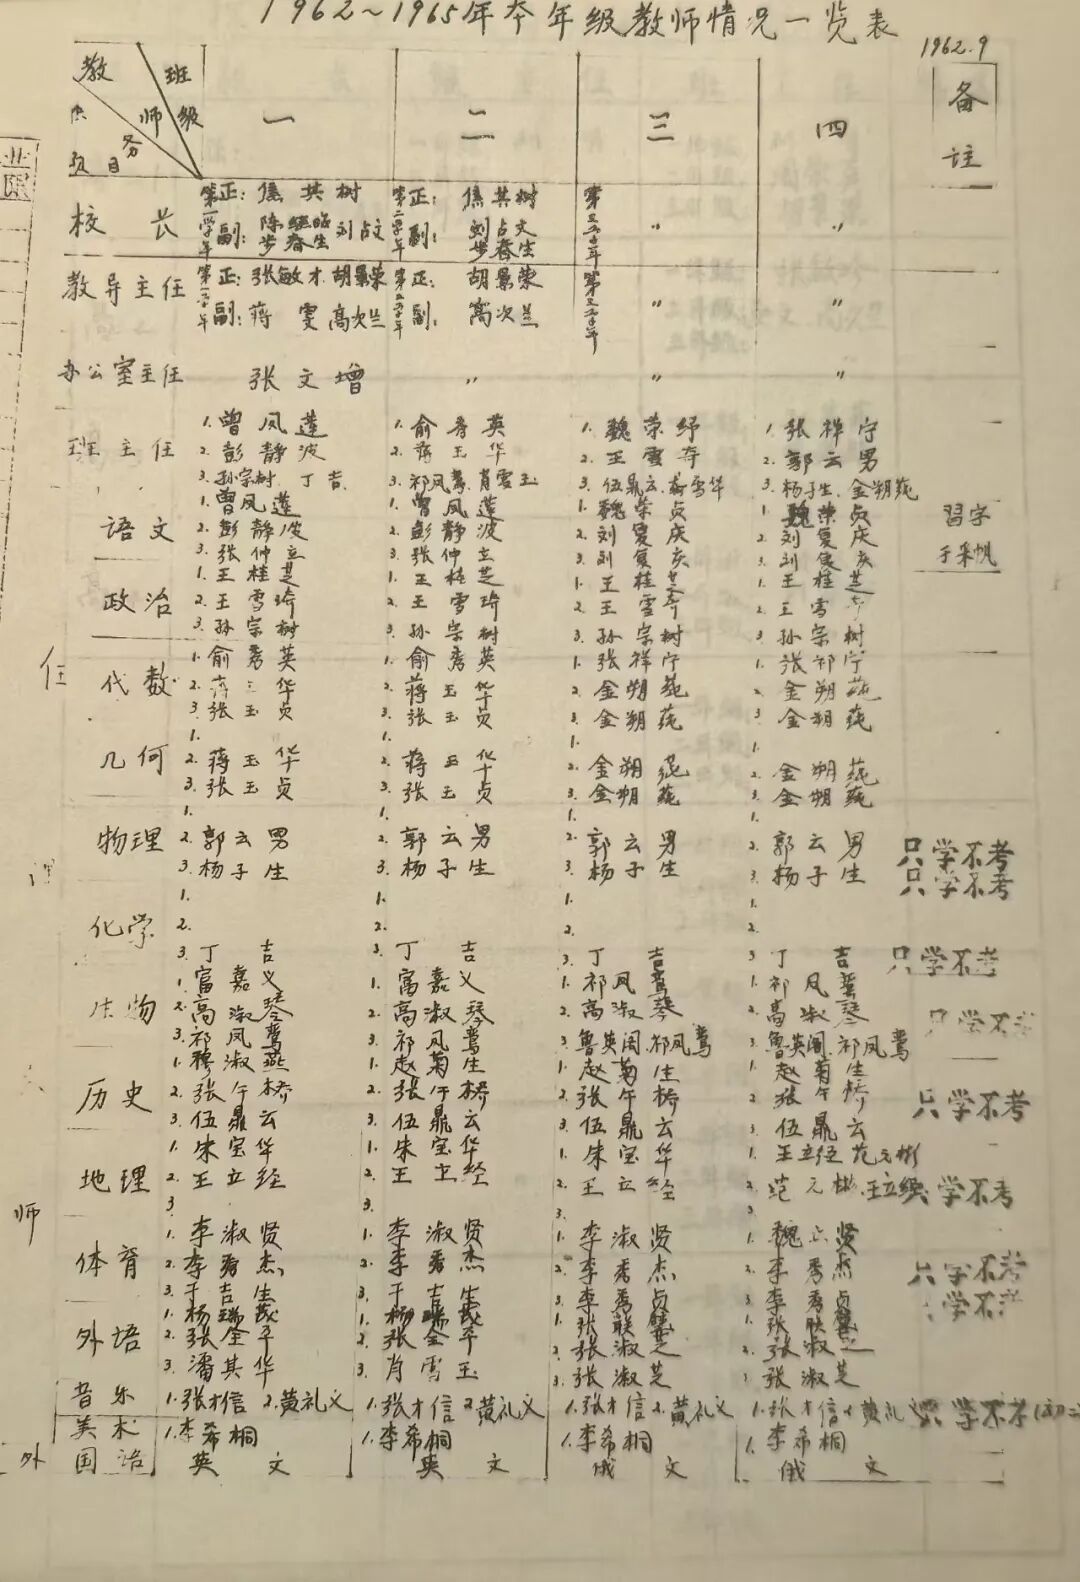 1962~1965年本年级教师情况一览表
1962.9
教 师 班 级 一 二 三 四 备注
任务
项目
校长 第一学年 正: 焦其树 第二学年 正: 焦其树 第三学年 〃 〃
副: 陈继临 步春生 刘占文 副: 刘占文 步春生
教导主任 第一学年 正: 张敏才 胡景荣 第二学年 正: 胡景荣 第三学年 〃 〃
副: 蒋雯 高次兰 副: 高次兰
办公室主任 张文增 〃 〃 〃
班主任 1.曾凤莲 1.俞秀英 1.魏荣纾 1.张祥宁
2.彭静波 2.蒋玉华 2.王雪奇 2.郭云男
3.孙宗树 丁吉 3.祁凤鸾 肖雪玉 3.伍鼎云 3.杨子生 金朔莼
语文 1.曾凤莲 1.曾凤莲 1.魏荣贞 1.魏荣贞 習字
2.彭静波 2.彭静波 2.刘复庆 2.刘复庆 于采帆
3.张仲立 3.张仲立 3.刘复庆 3.刘复庆
政治 1.王桂芝 1.王桂芝 1.王桂芝 1.王桂芝
2.王雪琦 2.王雪琦 2.王雪奇 2.王雪奇
3.孙宗树 3.孙宗树 3.孙宗树 3.孙宗树
任 代数 1.俞秀英 1.俞秀英 1.张祥宁 1.张祁宁
2.蒋玉华 2.蒋玉华 2.金朔莼 2.金朔莼
3.张玉贞 3.张玉贞 3.金朔莼 3.金朔莼
几何 1. 1. 1. 1.
2.蒋玉华 2.蒋玉华 2.金朔莼 2.金朔莼
3.张玉贞 3.张玉贞 3.金朔莼 3.金朔莼
物理 1. 1. 1. 1.
2.郭云男 2.郭云男 2.郭云男 2.郭云男 只学不考
3.杨子生 3.杨子生 3.杨子生 3.杨子生 只学不考
课 化学 1. 1. 1. 1.
2. 2. 2. 2.
3.丁吉 3.丁吉 3.丁吉 3.丁吉 只学不考
生物 1.富嘉义 1.富嘉义 1.祁凤鸾 1.祁凤鸾
2.高淑琴 2.高淑琴 2.高淑琴 2.高淑琴 只学不考
3.祁凤鸾 3.祁凤鸾 3.鲁英阁 祁凤鸾 3.鲁英阁 祁凤鸾
历史 1.穆淑燕 1.赵菊生 1.赵菊生 1.赵菊生
2.张午桥 2.张午桥 2.张午桥 2.张午桥 只学不考
3.伍鼎云 3.伍鼎云 3.伍鼎云 3.伍鼎云
地理 1.朱宝华 1.朱宝华 1.朱宝华 1.王立经 范元彬
2.王立经 2.王立经 2.王立经 2.范元彬 王立经 只学不考
3. 3. 3. 3.
师 体育 1.李淑贤 1.李淑贤 1.李淑贤 1.魏六贤
2.李秀杰 2.李秀杰 2.李秀杰 2.李秀杰 只学不考
3.于吉生 3.于吉生 3.李秀贞 3.李秀贞 只学不考
外语 1.杨瑞茂 1.杨瑞茂 1.张联慧 1.张联慧
2.张全平 2.张全平 2.张淑芝 2.张淑芝
3.潘其华 3.肖雪玉 3.张淑芝 3.张淑芝
音乐 1.张才信 2.黄礼义 1.张才信 2.黄礼义 1.张才信 2.黄礼义 1.张才信 2.黄礼义 只学不考
美术 1.李希桐 1.李希桐 1.李希桐 1.李希桐
外国语 英文 英文 俄文 俄文